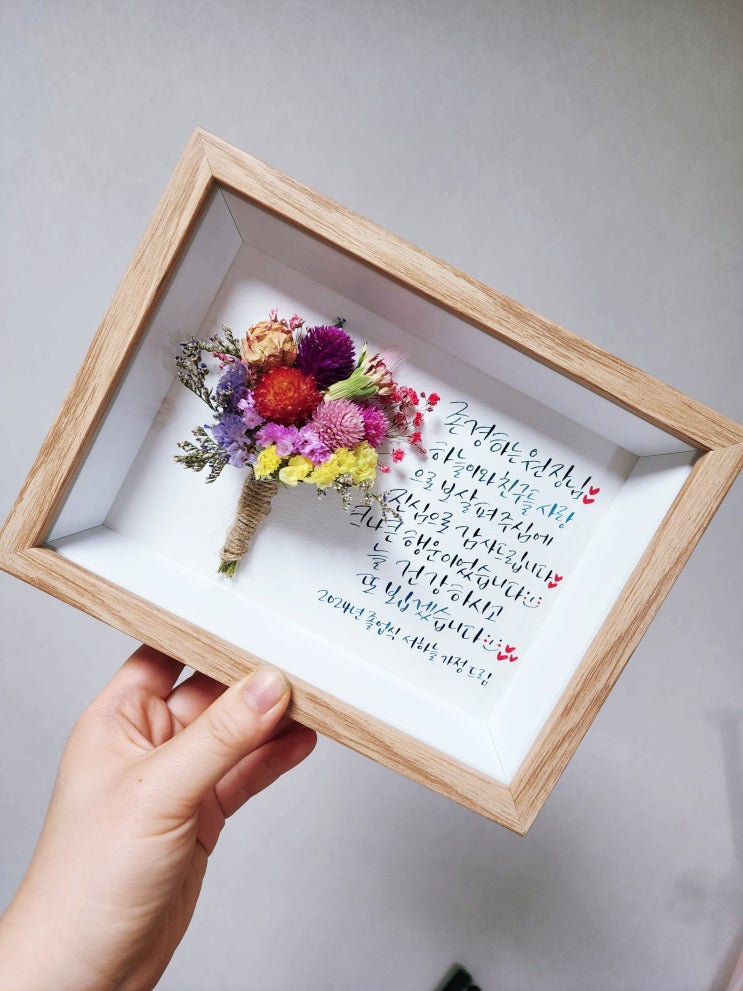 존경하는 원장님
하늘이와 친구들 사랑
으로 보살펴주심에
진심으로 감사드립니다
크나큰 행운이었습니다
늘 건강하시고
또 뵙겠습니다
2024년 졸업식 서하늘 가정 드림